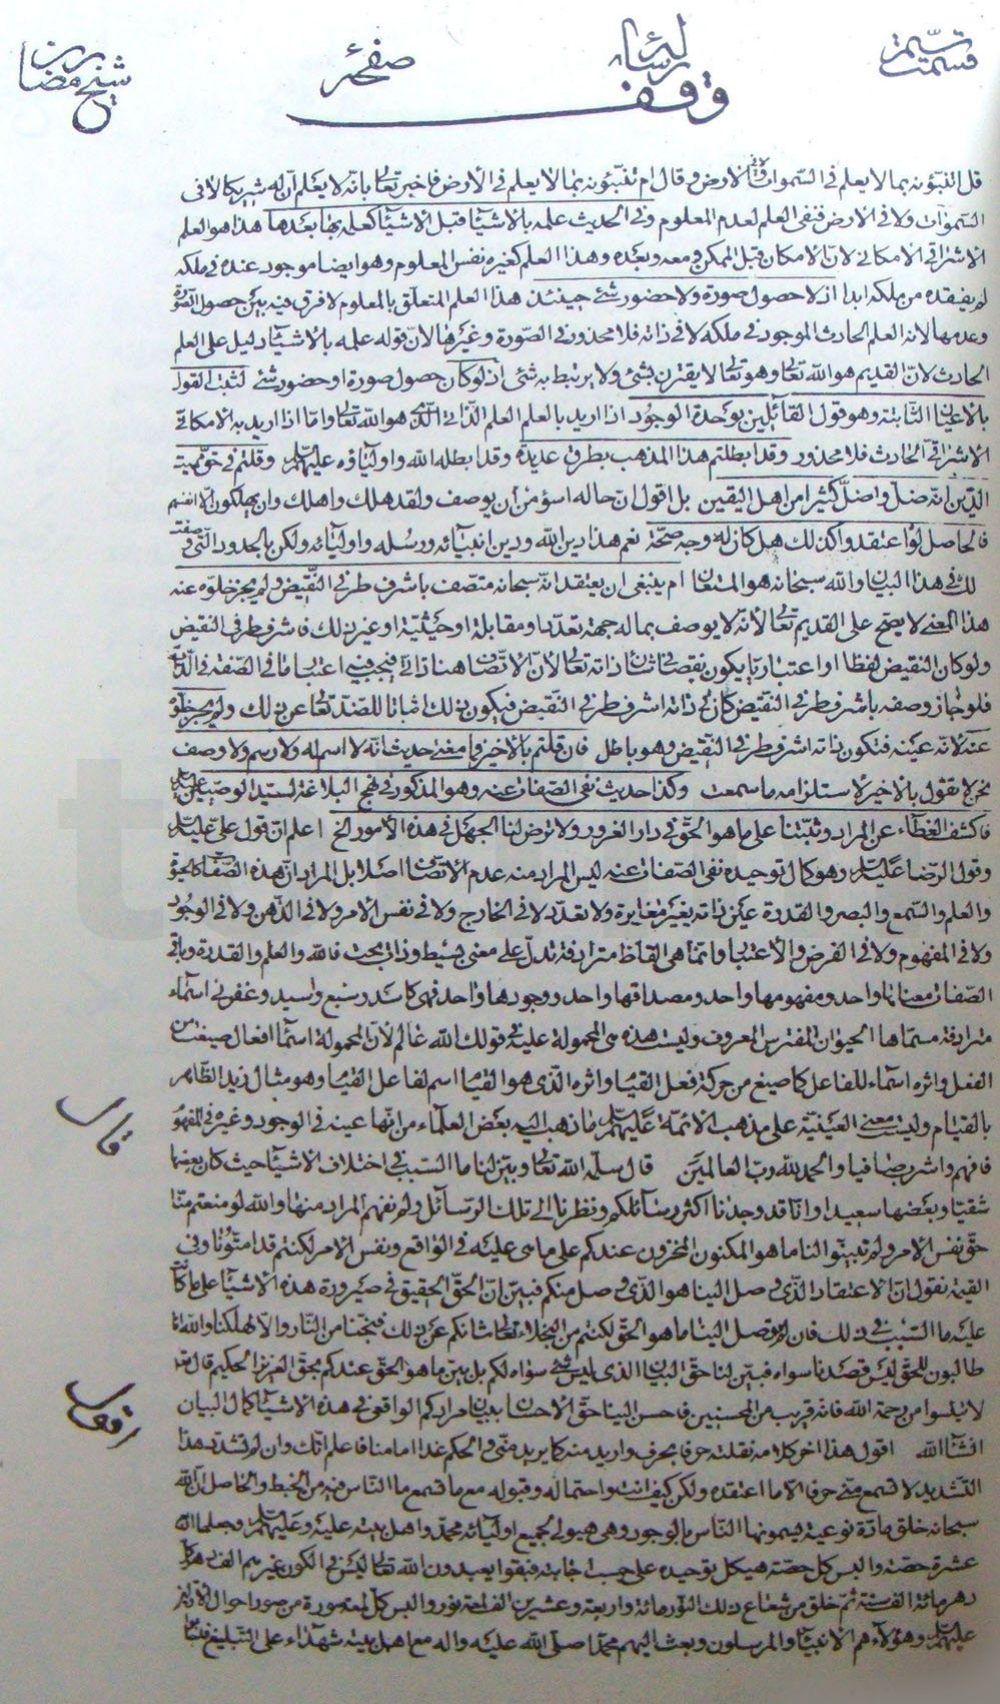 قسمت سيم رسالة صفحة شيخ رمضان
وقف
قل اتنبؤنه بما لا يعلم فى السموات ولا فى الارض وقال ام تنبؤنه بما لا يعلم فى الارض فاخبر تعالى بانه لا يعلم ان له شريكا لا فى
السموات ولا فى الارض فنفى العلم لعدم المعلوم وفى الحديث علمه بالاشياء قبل الاشياء كعلمه بها بعدها هذا هو العلم
الاشراقى الامكانى لان الامكان قبل الممكن ومعه وبعده وهذا العلم كغيره نفس المعلوم وهو ايضا موجود عنده فى ملكه
لم يفقده من ملكه ابدا اذ لا حصول صورة ولا حضور شئ حينئذ هذا العلم المتعلق بالمعلوم لا فرق فيه بين حصول الصورة
وعدمها لانه العلم الحادث الموجود فى ملكه لا فى ذاته فلا محذور فى الصورة وغيرها لان قوله علمه بالاشياء دليل على العلم
الحادث لان القديم هو الله تعالى وهو تعالى لا يقترن بشئ ولا يرتبط به شئ اذ لو كان حصول صورة او حضور شئ لثبت القول
بالاعيان الثابتة وهو قول القائلين بوحدة الوجود اذا اريد بالعلم العلم الذاتى الذى هو الله تعالى واما اذا اريد به الامكانى
الاشراقى الحادث فلا محذور وقد ابطلتم هذا المذهب بطرق عديدة وقد ابطله الله واولياؤه عليهم السلام وقلتم فى حق مميت
الدين انه ضل واضل كثيرا من اهل اليقين بل اقول ان حاله اسوء من ان يوصف ولقد هلك واهلك وان يهلكون الا انفسهم
فالحاصل لو اعتقدوا كذلك هل كان له وجه صحة نعم هذا دين الله ودين انبيائه ورسله واوليائه ولكن بالحدود التى وصفت
لك فى هذا البيان والله سبحانه هو المستعان ام ينبغى ان يعتقد انه سبحانه متصف باشرف طرفى النقيض ولم يجز خلوه عنه
هذا المعنى لا يصح على القديم تعالى لانه لا يوصف بما له جهة تعدد او مقابلة او حيثية او غير ذلك فاشرف طرفى النقيض
ولو كان النقيض لفظا او اعتباريا يكون نقصا فى شان ذاته تعالى لان الاتصاف هنا ذاتى فيجب فيه اعتبار ما فى الصفة فى الذات
فلو جاز وصفه باشرف طرفى النقيض كان فى ذاته اشرف طرفى النقيض فيكون ذلك اثباتا للضد تعالى عن ذلك ولم يجز خلوه
عنه لانه عينه فتكون ذاته اشرف طرفى النقيض وهو باطل فان قلتم بالاخير فما معنى حديث انه لا اسم له ولا رسم ولا وصف
نحن لا نقول بالاخير لاستلزامه ما سمعت وكذا حديث نفى الصفات عنه وهو المذكور فى نهج البلاغة لسيد الوصيين عليه السلام
فاكشف الغطاء عن المراد وثبتنا على ما هو الحق فى دار الغرور ولا ترض لنا الجهل فى هذه الامور الخ اعلم ان قول على عليه السلام
وقول الرضا عليه السلام وهو كمال توحيده نفى الصفات عنه ليس المراد منه عدم الاتصاف اصلا بل المراد ان هذه الصفات كالحيوة
والعلم والسمع والبصر والقدرة عين ذاته بغير مغايرة ولا تعدد لا فى الخارج ولا فى نفس الامر ولا فى الذهن ولا فى الوجود
ولا فى المفهوم ولا فى الفرض والاعتبار وانما هى الفاظ مترادفة تدل على معنى بسيط وذات بحت فالله والعلم والقدرة وباقى
الصفات معناها واحد ومفهومها واحد ومصداقها واحد ووجودها واحد فهى كاسد وسبع واسيد وغضنفر اسماء
مترادفة مسماها الحيوان المفترس المعروف وليست هذه هى المحمولة عليه فى قولك الله عالم لان المحمولة اسماء افعال صيغت من
الفعل واثره اسماء للفاعل كما صيغ من حركة فعل القيام واثره الذى هو القيام اسم لفاعل القيام وهو مثال زيد الظاهر
بالقيام وليست معنى العينية على مذهب الائمة عليهم السلام ما ذهب اليه بعض العلماء من انها عينه فى الوجود وغيره فى المفهوم
فافهم واشرب صافيا والحمد لله رب العالمين قال سلمه الله تعالى وبين لنا ما السبب فى اختلاف الاشياء حيث كان بعضها
شقيا وبعضها سعيدا وانا قد وجدنا اكثر رسائلكم ونظرنا الى تلك الرسائل ولم نفهم المراد منها والله لو منعتم منا
حق نفس الامر ولم تبينوا لنا ما هو المكنون المخزون عندكم على ما هى عليه فى الواقع ونفس الامر لكنتم قد امتمونا وفى
القيمة نقول ان الاعتقاد الذى وصل الينا هو الذى وصل منكم فبين ان الحق الحقيق فى صيرورة هذه الاشياء على ما كانت
عليه ما السبب فى ذلك فان لم يوصل الينا ما هو الحق لكنتم من البخلاء تعالى شانكم عن ذلك فنجنا من النار والا لهلكنا والله انا
طالبون للحق ليس قصدنا سواه فبين لنا حق البيان الذى ليس شئ سواه لكم بل بين ما هو الحق عندكم بحق العزيز الحكيم قال الله
لا تيئسوا من رحمة الله فانه قريب من المحسنين فاحسن الينا حق الاحسان ببيان مرادكم الواقعى فى هذه الاشياء كمال البيان
انشاء الله اقول هذا اخر كلامه نقلته حرفا بحرف واريد منه كما يريد منى والحكم غدا امامنا فاعلم انك وان لم تشدد هذا
التشديد لا تسمع منى حرفا الا ما اعتقده ولكن كيف انت واحتماله وقبوله مع ما تسمع ما الناس فيه من الخبط والحاصل ان الله
سبحانه خلق مادة نوعية يسمونها الناس بالوجود وهى هيولى لجميع اوليائه محمد واهل بيته عليه وعليهم السلام وجعلها اربع
عشرة حصة والبس كل حصة هيكل توحيده على حسب اجابته فبقوا يعبدون الله تعالى ليس فى الكون غيرهم الف دهر كل
دهر مائة الف سنة ثم خلق من شعاع ذلك النور مائة واربعة وعشرين الف لمعة نور والبس كل لمعة صورة من صور احوال الاولين
عليهم السلام وهؤلاء هم الانبياء والمرسلون وبعث اليهم محمدا صلى الله عليه واله مع اهل بيته شهداء على التبليغ
قال
اقول